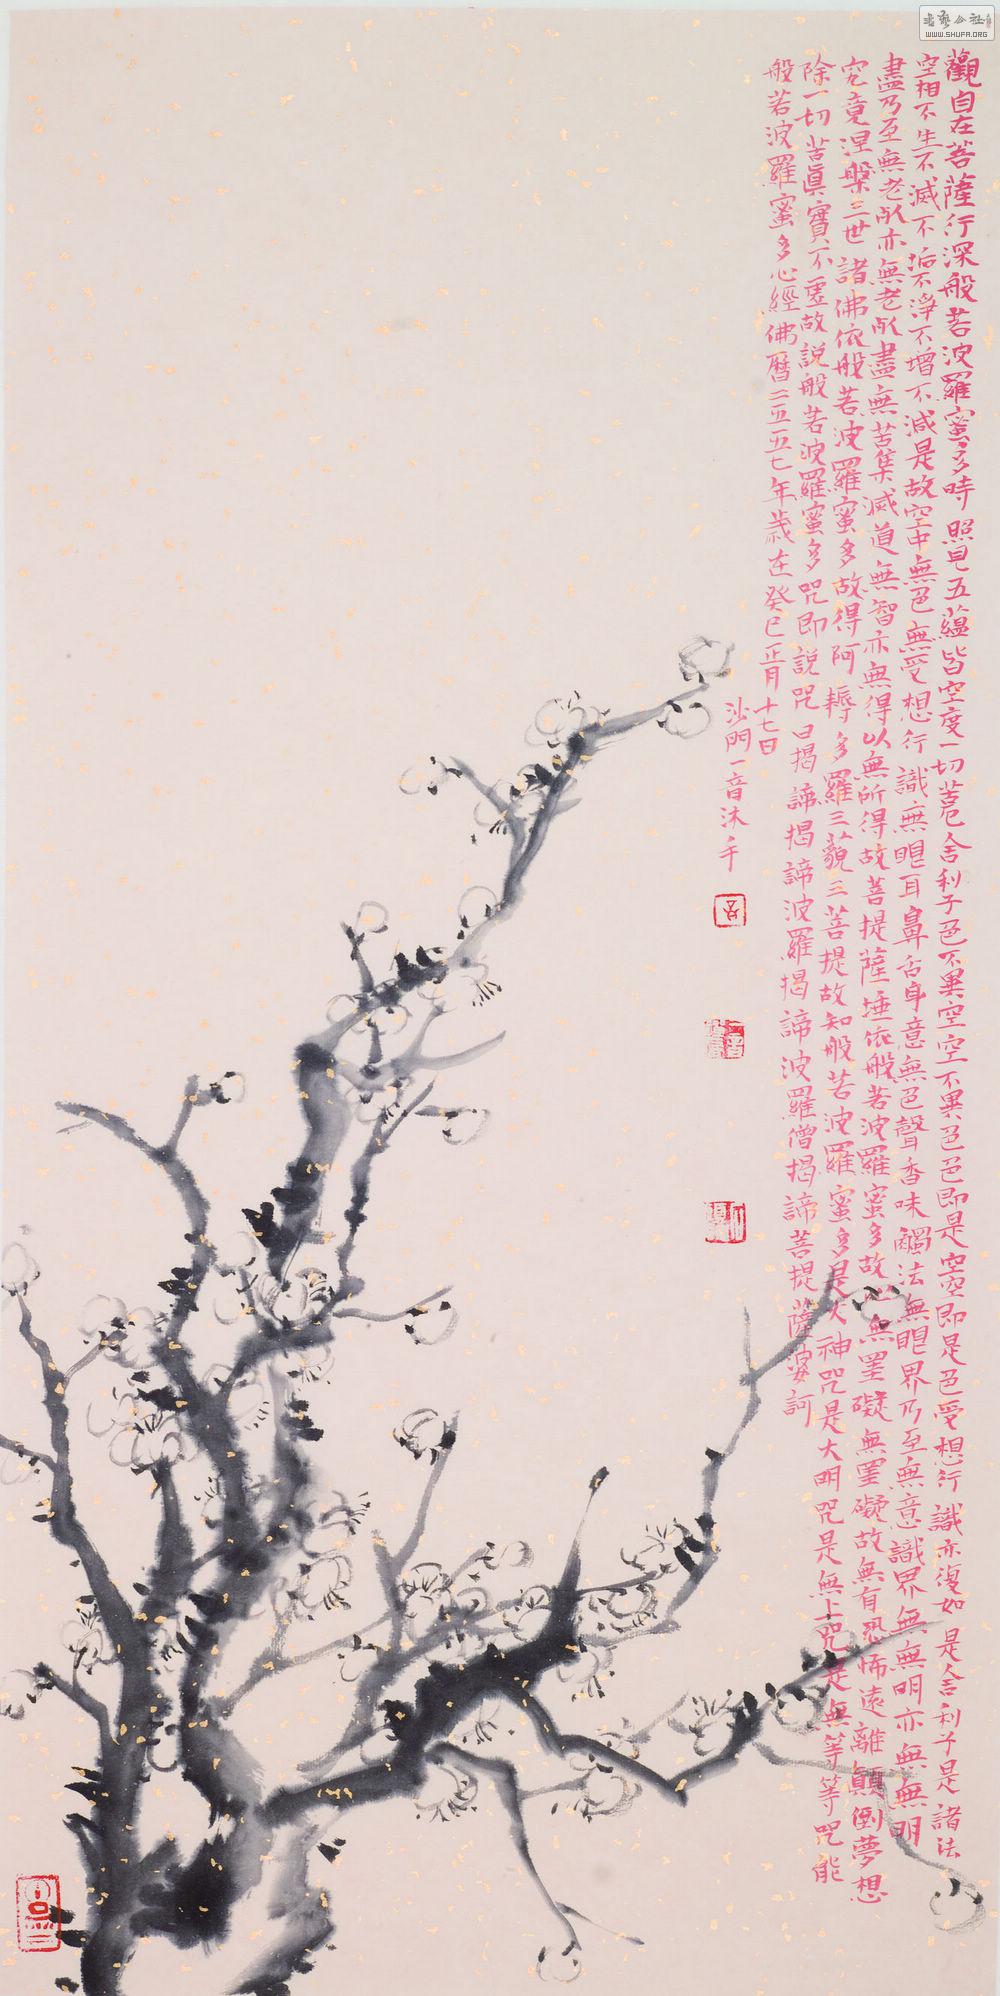 觀自在菩薩行深般若波羅蜜多時照見五蘊皆空度一切苦厄舍利子色不異空空不異色色即是空空即是色受想行識亦復如是舍利子是諸法
空相不生不滅不垢不淨不增不減是故空中無色無受想行識無眼耳鼻舌身意無色聲香味觸法無眼界乃至無意識界無無明亦無無明
盡乃至無老死亦無老死盡無苦集滅道無智亦無得以無所得故菩提薩埵依般若波羅蜜多故心無罣礙無罣礙故無有恐怖遠離顛倒夢想
究竟涅槃三世諸佛依般若波羅蜜多故得阿耨多羅三藐三菩提故知般若波羅蜜多是大神咒是大明咒是無上咒是無等等咒能
除一切苦真實不虛故說般若波羅蜜多咒即說咒曰揭諦揭諦波羅揭諦波羅僧揭諦菩提薩婆訶
般若波羅蜜多心經佛曆二五五七年歲在癸巳正月
十七日
沙門一音沐手
WWW.SHUFA.ORG